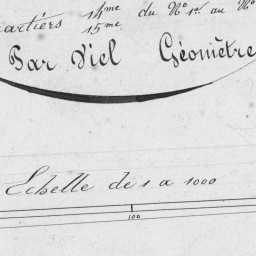 artiers 14me du No 1er au No
15me
Par Viel Géomètre
Echelle de 1 a 1000
100